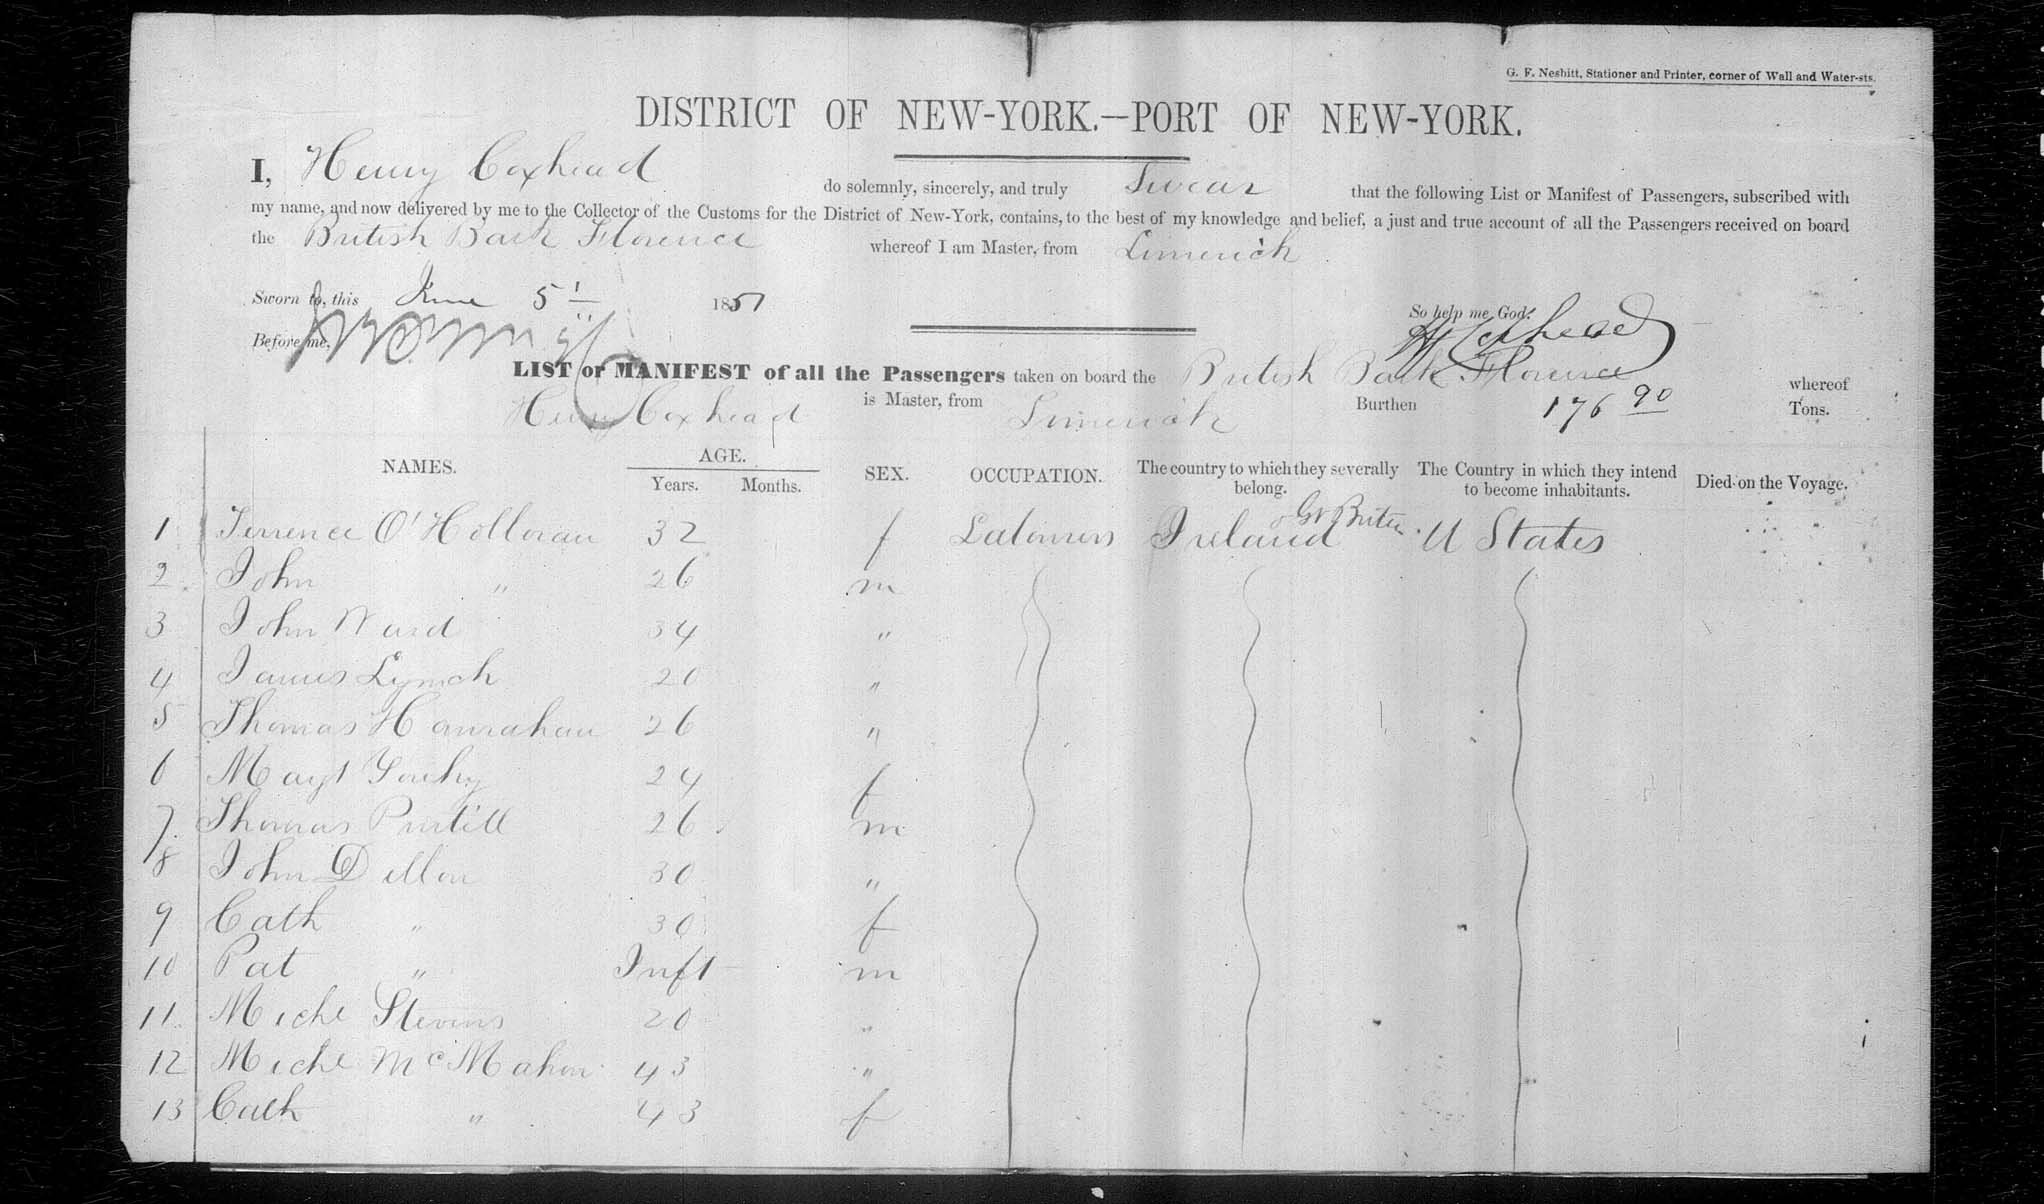 G. F. Nesbitt, Stationer and Printer, corner of Wall and Water-sts.
DISTRICT OF NEW-YORK.—PORT OF NEW-YORK.
I, Henry Coxhead do solemnly, sincerely, and truly Swear that the following List or Manifest of Passengers, subscribed with
my name, and now delivered by me to the Collector of the Customs for the District of New-York, contains, to the best of my knowledge and belief, a just and true account of all the Passengers received on board
the British Bark Florence whereof I am Master, from Limerick
Sworn to, this June 5 1851
So help me God.
Before me, H Coxhead
LIST or MANIFEST of all the Passengers taken on board the British Bark Florence whereof
Henry Coxhead is Master, from Limerick Burthen 176 90 Tons.
NAMES. AGE. Years. Months. SEX. OCCUPATION. The country to which they severally belong. The Country in which they intend to become inhabitants. Died on the Voyage.
1 Terrence O'Holloran 32 f Labourers Ireland Gt Britn U States
2 John " 26 m
3 John Ward 34 "
4 James Lynch 20 "
5 Thomas Hanrahan 26 "
6 Magt 24 f
7 Thomas Purtill 26 m
8 John Dillon 30 "
9 Cath " 30 f
10 Pat " Inft m
11 Michl Stevens 20 "
12 Michl McMahon 43 "
13 Cath " 43 f